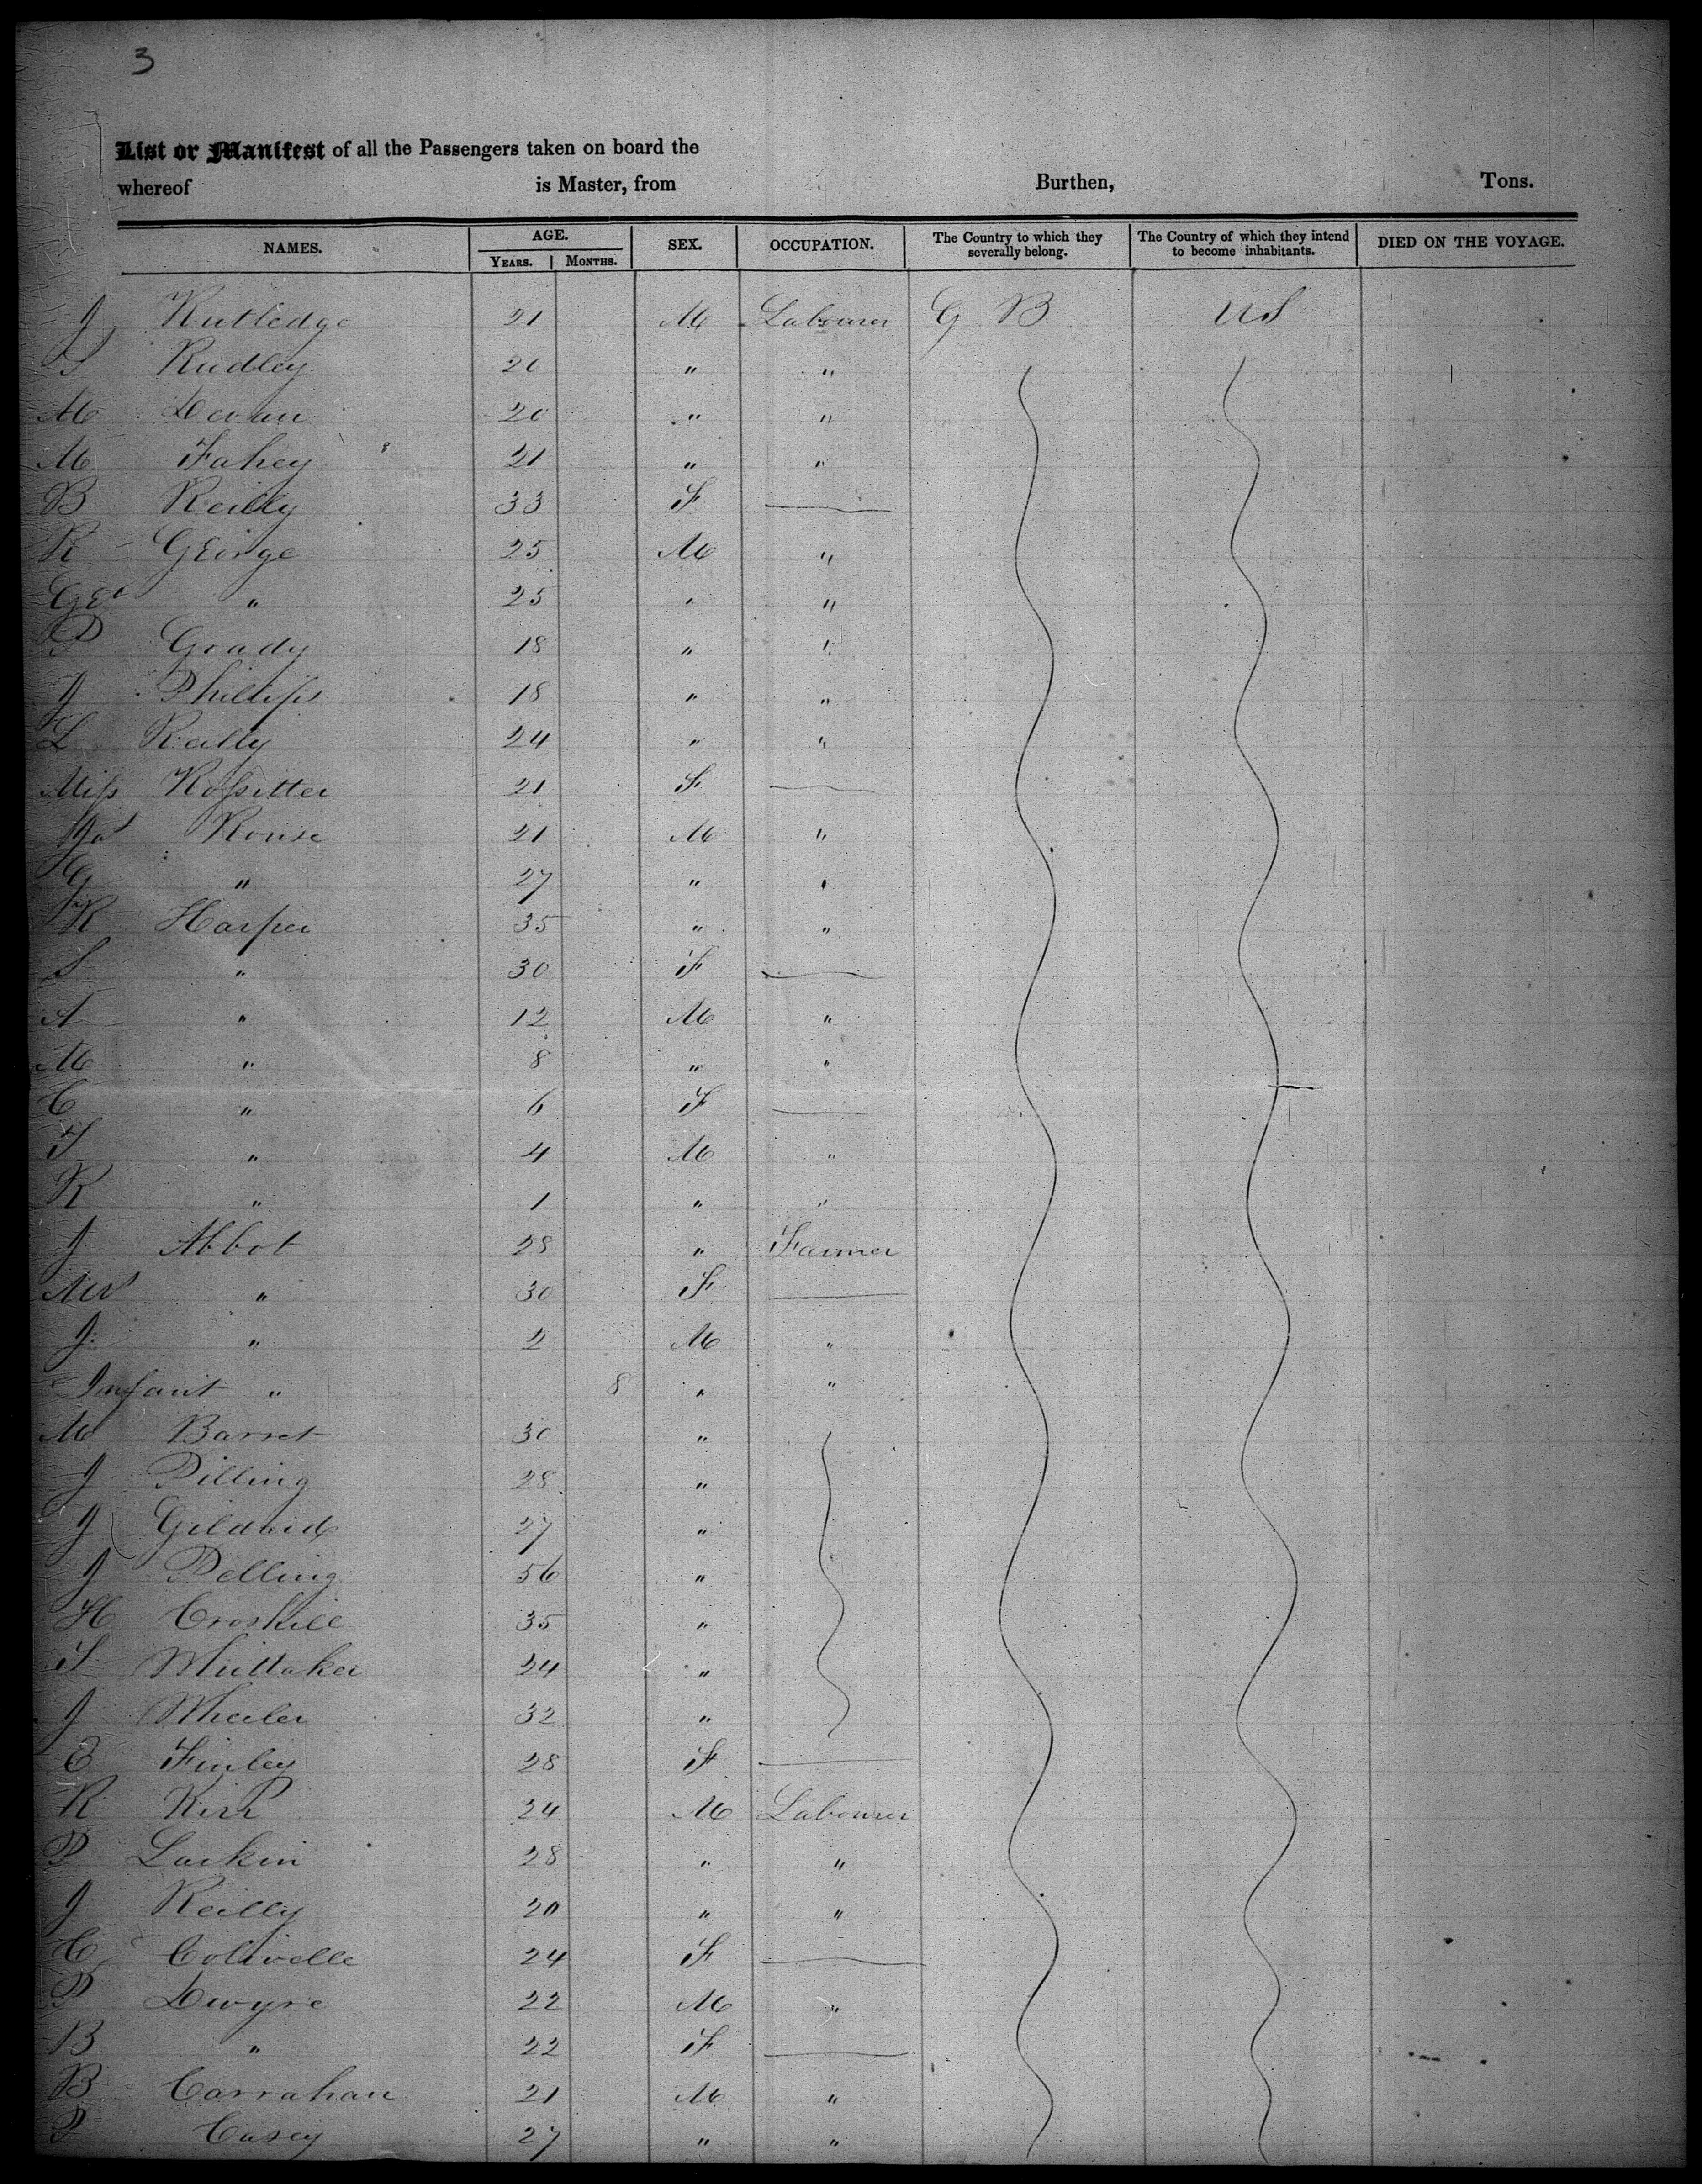 3
List or Manifest of all the Passengers taken on board the
whereof is Master, from Burthen, Tons.
NAMES. AGE. YEARS. MONTHS. SEX. OCCUPATION. The Country to which they severally belong. The Country of which they intend to become inhabitants. DIED ON THE VOYAGE.
J Rutledge 21 M Labourer G B US
S Rudley 20 " "
M 20 " "
M Fahey 21 " "
B Reilly 33 F
R George 25 M "
Geo " 25 " "
P Grady 18 " "
J Phillips 18 " "
L Reilly 24 " "
Miss Rossitter 21 F
Jas Rouse 21 M "
G " 27 " "
R Harper 35 " "
S " 30 F
A " 12 M "
M " 8 " "
C " 6 F
T " 4 M "
R " 1 " "
J Abbot 28 " Farmer
Mrs " 30 F
J " 2 M "
Infant " 8 " "
M Barret 30 "
J Pilling 28 "
J 27 "
J Pelling 56 "
H Croskill 35 "
S Whittaker 24 "
J Wheeler 32 "
E Finley 28 F
R Kirk 24 M Labourer
P Larkin 28 " "
J Reilly 20 " "
C 24 F
P Dwyre 22 M "
B " 22 F
B Carrahan 21 M "
P Casey 27 " "